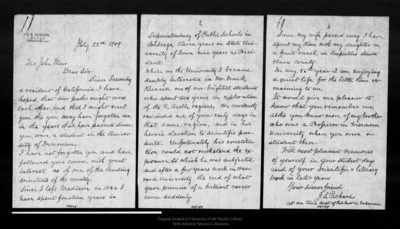 July 22nd 1909
Mr. John Muir
Dear Sir:
Since becoming
a resident of California I have
hoped that our paths might cross
each other and that I might meet
you
you may have forgotten me
in the years that have passed since
you were a student in the Univer-
sity of Wisconsin.
I have not forgotten you and have
followed your career with great
interest as of one of the leading
scientists of the country.
Since I left Madison in
have spent fourteen years as
2
Superintendent of Public Schools in
Chicago, eleven years in State Univ-
ersity of Iowa nine years as Presi-
dent.
While in the University I became
interested in Mr. Frank
Russell one of our brightest students
who spent two years in exploration
of the Arctic regions. He constantly
reminded me of your early days in
that same region, and in his
heroic devotion to scientific pur-
suits. Unfortunately his constitu-
tion could not withstand the ex-
posure to which he was subjected
and after a few years work in
University the end of what
gave promise of a brilliant career
came suddenly.
3
Since my wife passed away I have
spent my time with my daughter on
a ranch in Santa
Clara county.
In my 86th year I am enjoying
a quiet life for the little time re-
maining to me.
It would give me pleasure to
know that you remember me
altho you knew more of my brother
who was a Professor in Wisconsin
University when you were a
student there.
With most pleasant memories
of yourself in your student days
and of your scientific & literary
work in later years
Your sincere friend
J L Pickard
Original located at University of the Pacific Library
Holt-Atherton Special Collections